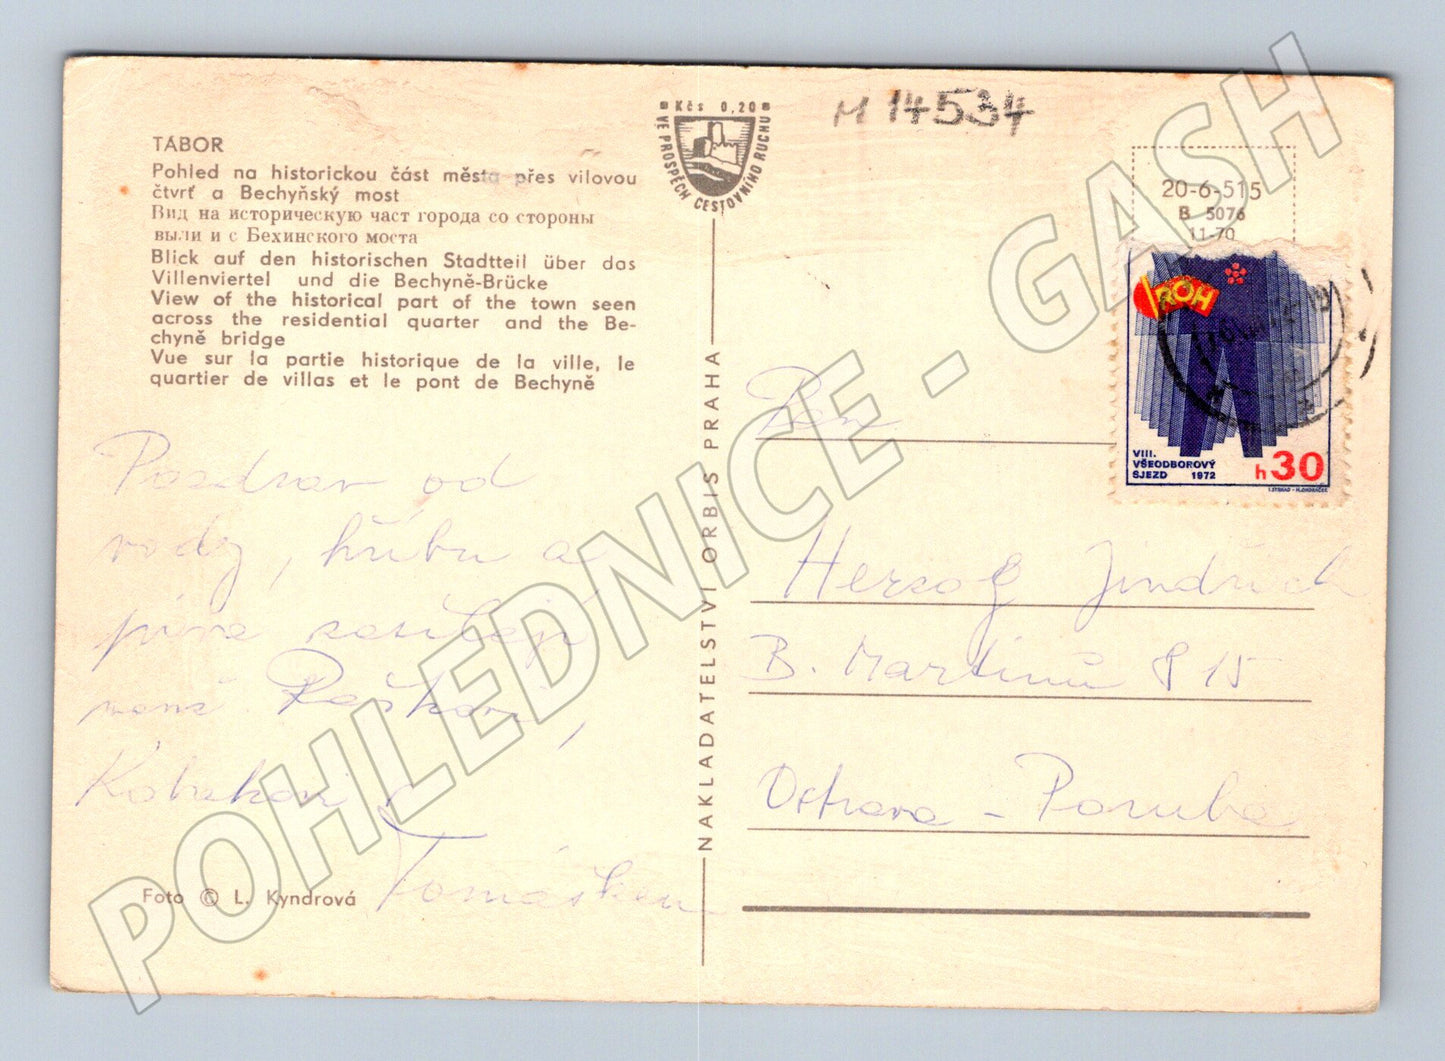 M 14534
Kčs 0,20
VE PROSPĚCH CESTOVNÍHO RUCHU
TÁBOR
Pohled na historickou část města přes vilovou
čtvrť a Bechyňský most
Вид на историческую част города со стороны
выли и с Бехинского моста
Blick auf den historischen Stadtteil über das
Villenviertel und die Bechyně-Brücke
View of the historical part of the town seen
across the residential quarter and the Be-
chyně bridge
Vue sur la partie historique de la ville, le
quartier de villas et le pont de Bechyně
Pozdrav od
vody, hřibů a
piva zasílají
Foto © L. Kyndrová
Tomáškem
NAKLADATELSTVÍ ORBIS PRAHA
20-6-515
B 5076
11-70
ROH
VIII.
VŠEODBOROVÝ
SJEZD 1972
h 30
Herzog Jindřich
B. Martinů 815
Ostrava - Poruba
POHLEDNICE - GASH